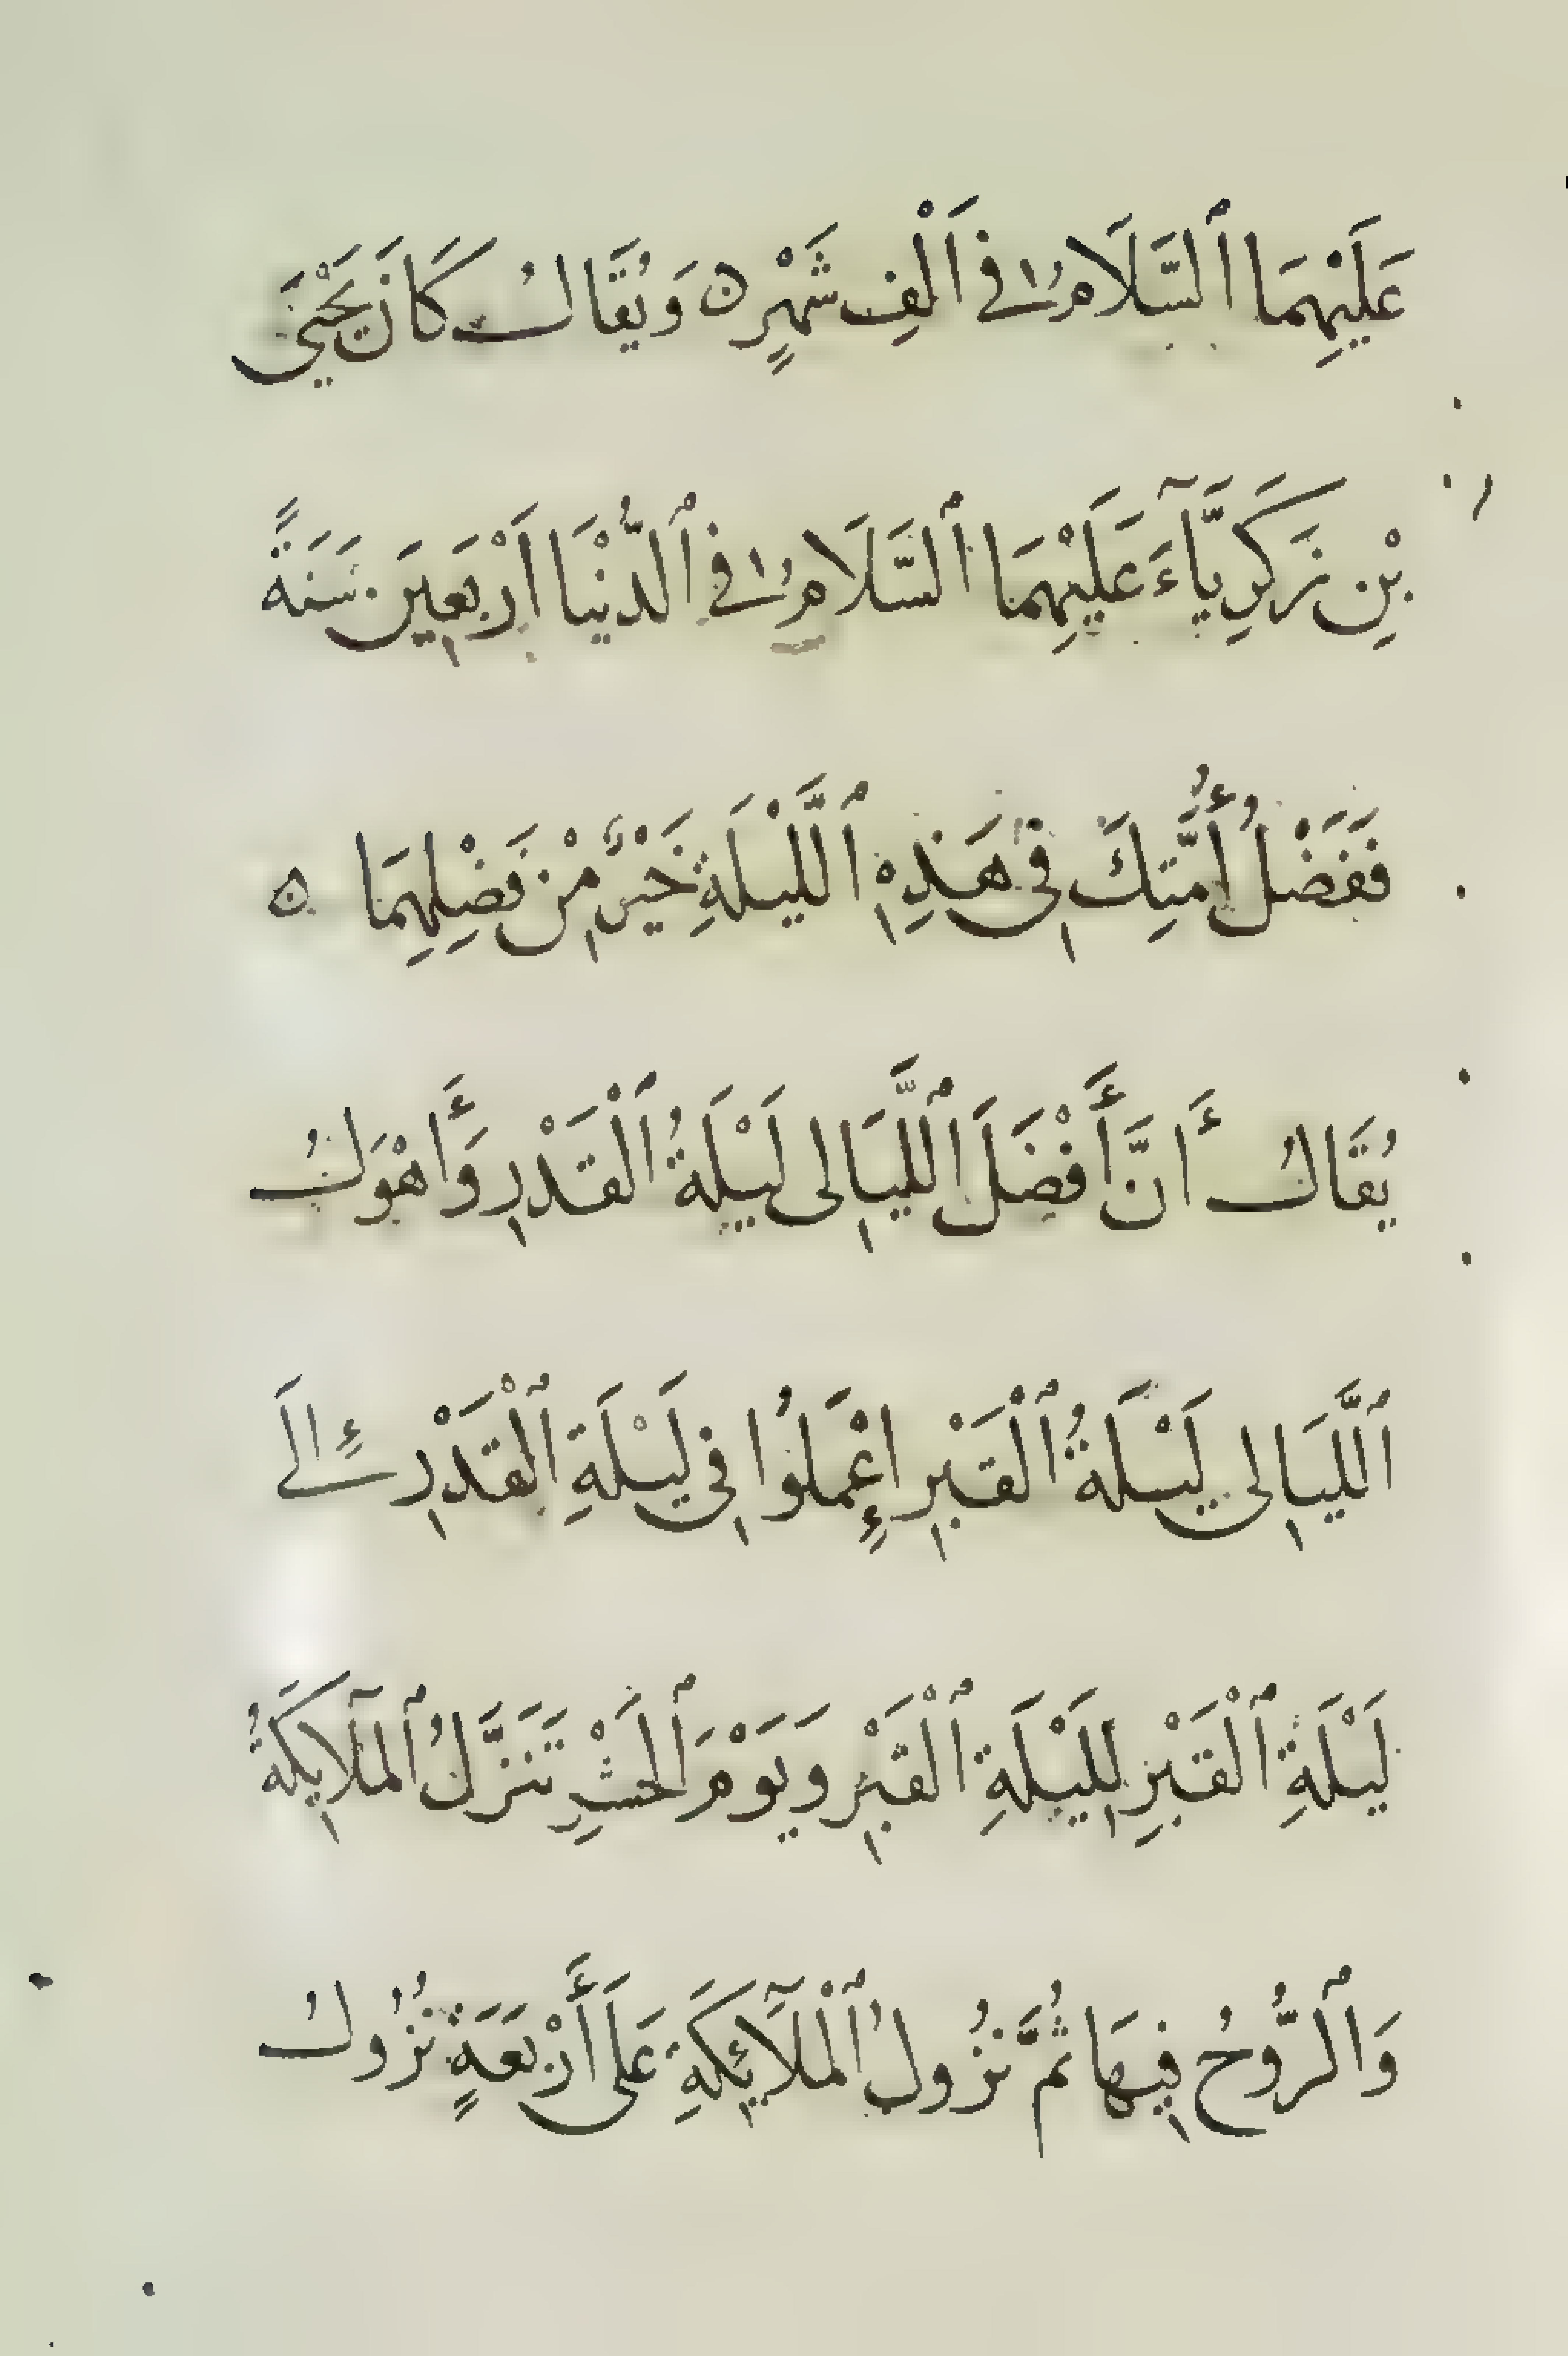 عَلَيْهِمَا ٱلسَّلَامُ فِى اَلْفِ شَهْرٍ ۝ وَيُقَالُ كَانَ يَحْيَى
بْنِ زَكَرِيَّآءَ عَلَيْهِمَا ٱلسَّلَامُ فِى ٱلدُّنْيَا اَرْبَعِينَ سَنَةً
فَفَضْلُ أُمَّتِكَ فِى هَذِهِ ٱللَّيْلَةِ خَيْرٌ مِنْ فَضْلِهِمَا ۝
يُقَالُ أَنَّ أَفْضَلَ ٱللَّيَالِى لَيْلَةُ ٱلْقَدْرِ وَأَهْوَلُ
ٱللَّيَالِى لَيْلَةُ ٱلْقَبْرِ إِعْمَلُوا فِى لَيْلَةِ ٱلْقَدْرِ إِلَى
لَيْلَةِ ٱلْقَبْرِ لِلَيْلَةِ ٱلْقَبْرِ وَيَوْمَ ٱلْحَشْرِ تَنَزَّلُ ٱلْمَلَآيِكَةُ
وَٱلرُّوحُ فِيهَا ثُمَّ نُزُولُ ٱلْمَلَآئِكَةِ عَلَى أَرْبَعَةٍ نُزُولُ